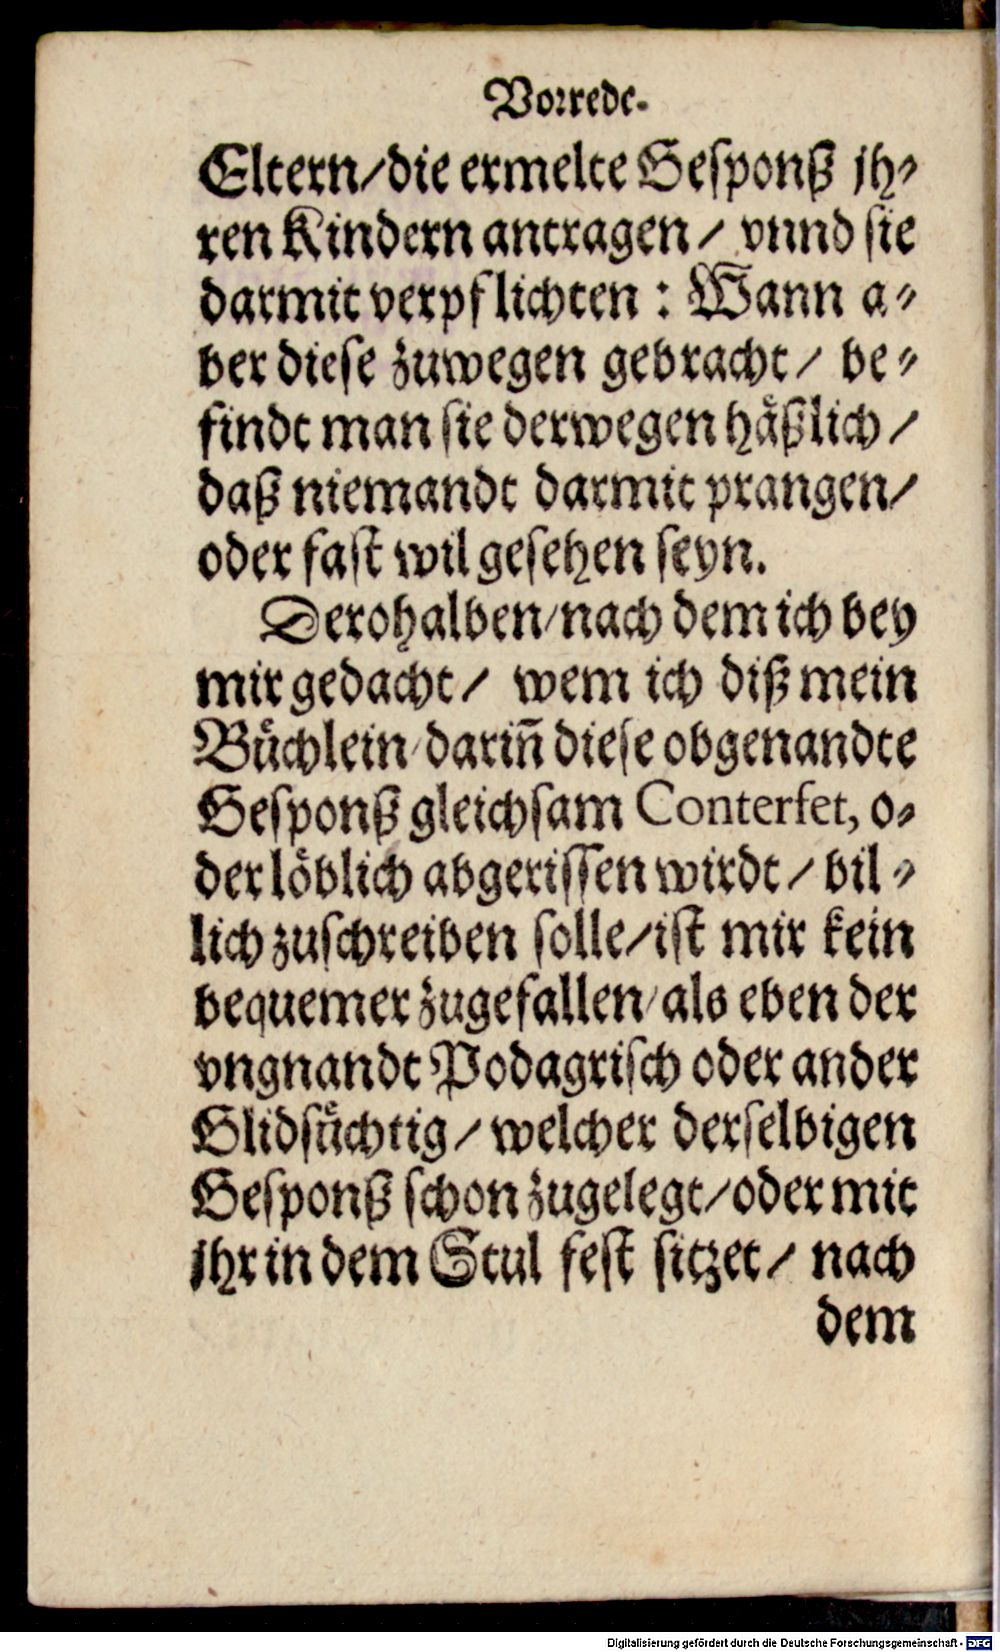 Vorrede.
Eltern/die ermelte Gesponß jh-
ren Kindern antragen/ vnnd sie
darmit verpflichten: Wann a-
ber diese zuwegen gebracht/ be-
findt man sie derwegen häßlich/
daß niemandt darmit prangen/
oder fast wil gesehen seyn.
Derohalben/nach dem ich bey
mir gedacht/ wem ich diß mein
Büchlein/darin̄ diese obgenandte
Gesponß gleichsam Conterfet, o-
der löblich abgerissen wirdt/ bil-
lich zuschreiben solle/ist mir kein
bequemer zugefallen/als eben der
vngnandt Podagrisch oder ander
Glidsüchtig/ welcher derselbigen
Gesponß schon zugelegt/oder mit
jhr in dem Stul fest sitzet/ nach
dem
Digitalisierung gefördert durch die Deutsche Forschungsgemeinschaft - DFG